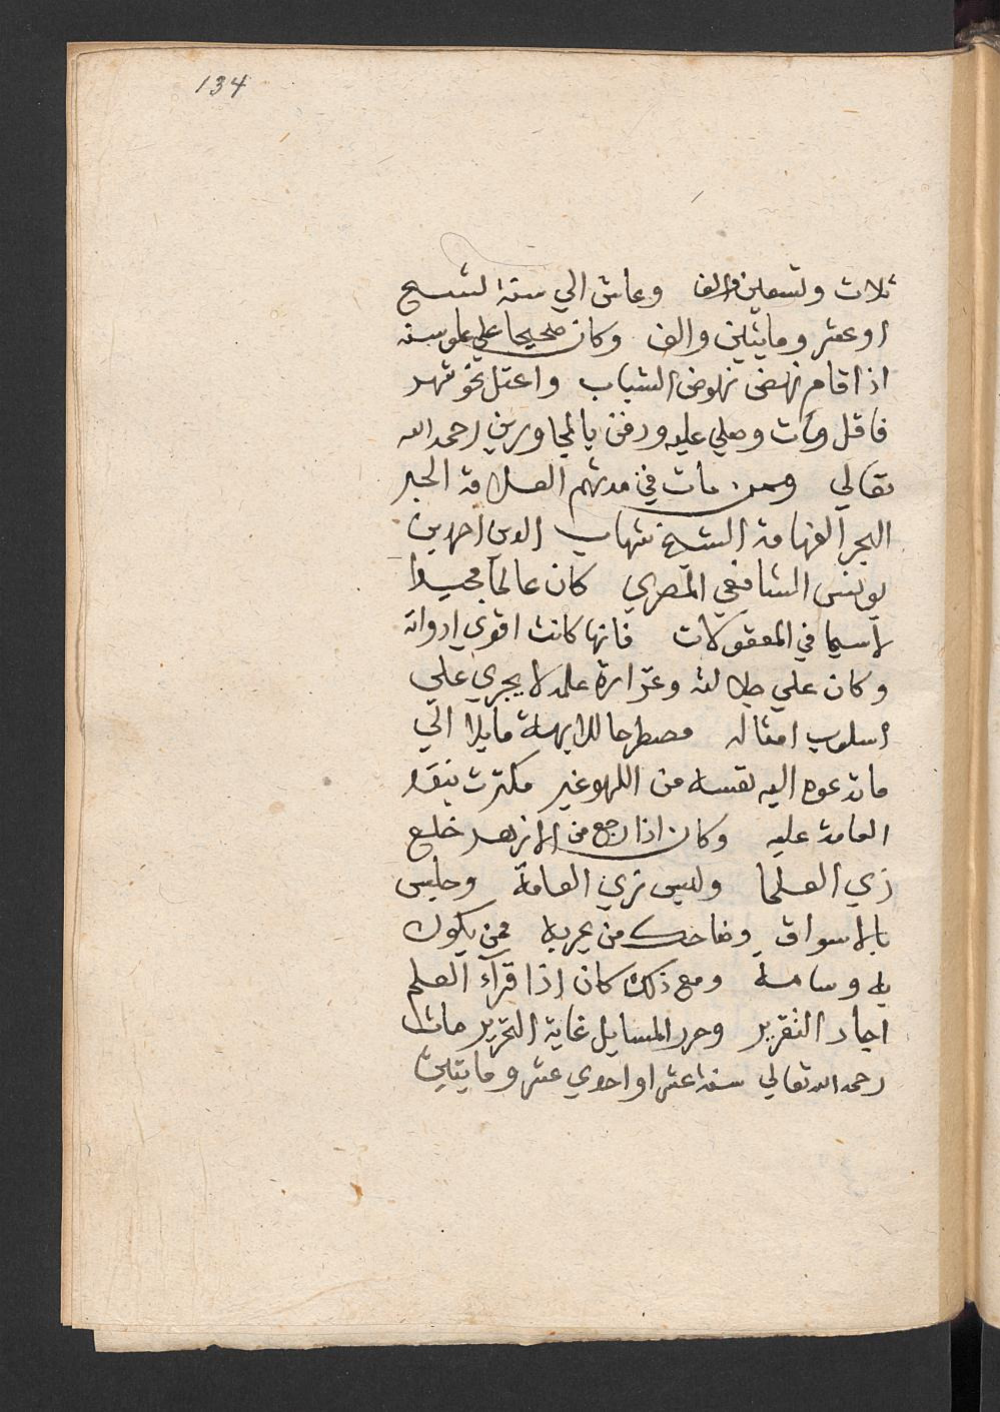 134
ثلاث وتسعين والف وعاش الي سنة تسع
او عشر ومايتين والف وكان صحيحا علي علو سنه
اذا قام نهض نهوض الشباب واعتل نحو شهر
ومات وصلي عليه ودفن بالمجاورين رحمه الله
تعالي وممن مات في مدتهم العلامة الحبر
البحر الفهامة الشيخ شهاب الدين احمد بن
يونس الشافعي المصري كان عالما مجيدا
لاسيما في المعقولات فانها كانت اقوي ادواته
وكان علي جلالته وغزارة علمه لا يجري علي
اسلوب امثاله مصطرحا للابهة مايلا الي
ما تدعوه اليه نفسه من اللهو غير مكترث بنقد
العامة عليه وكان اذا رجع من الازهر خلع
زي العلما ولبس زي العامة وجلس
بالاسواق وضاحك من يمر به ممن يكون
به وسامة ومع ذلك كان اذا قرآء العلم
اجاد التقرير وحرر المسايل غاية التحرير مات
رحمه الله تعالي سنة عشر او احدي عشر ومايتين